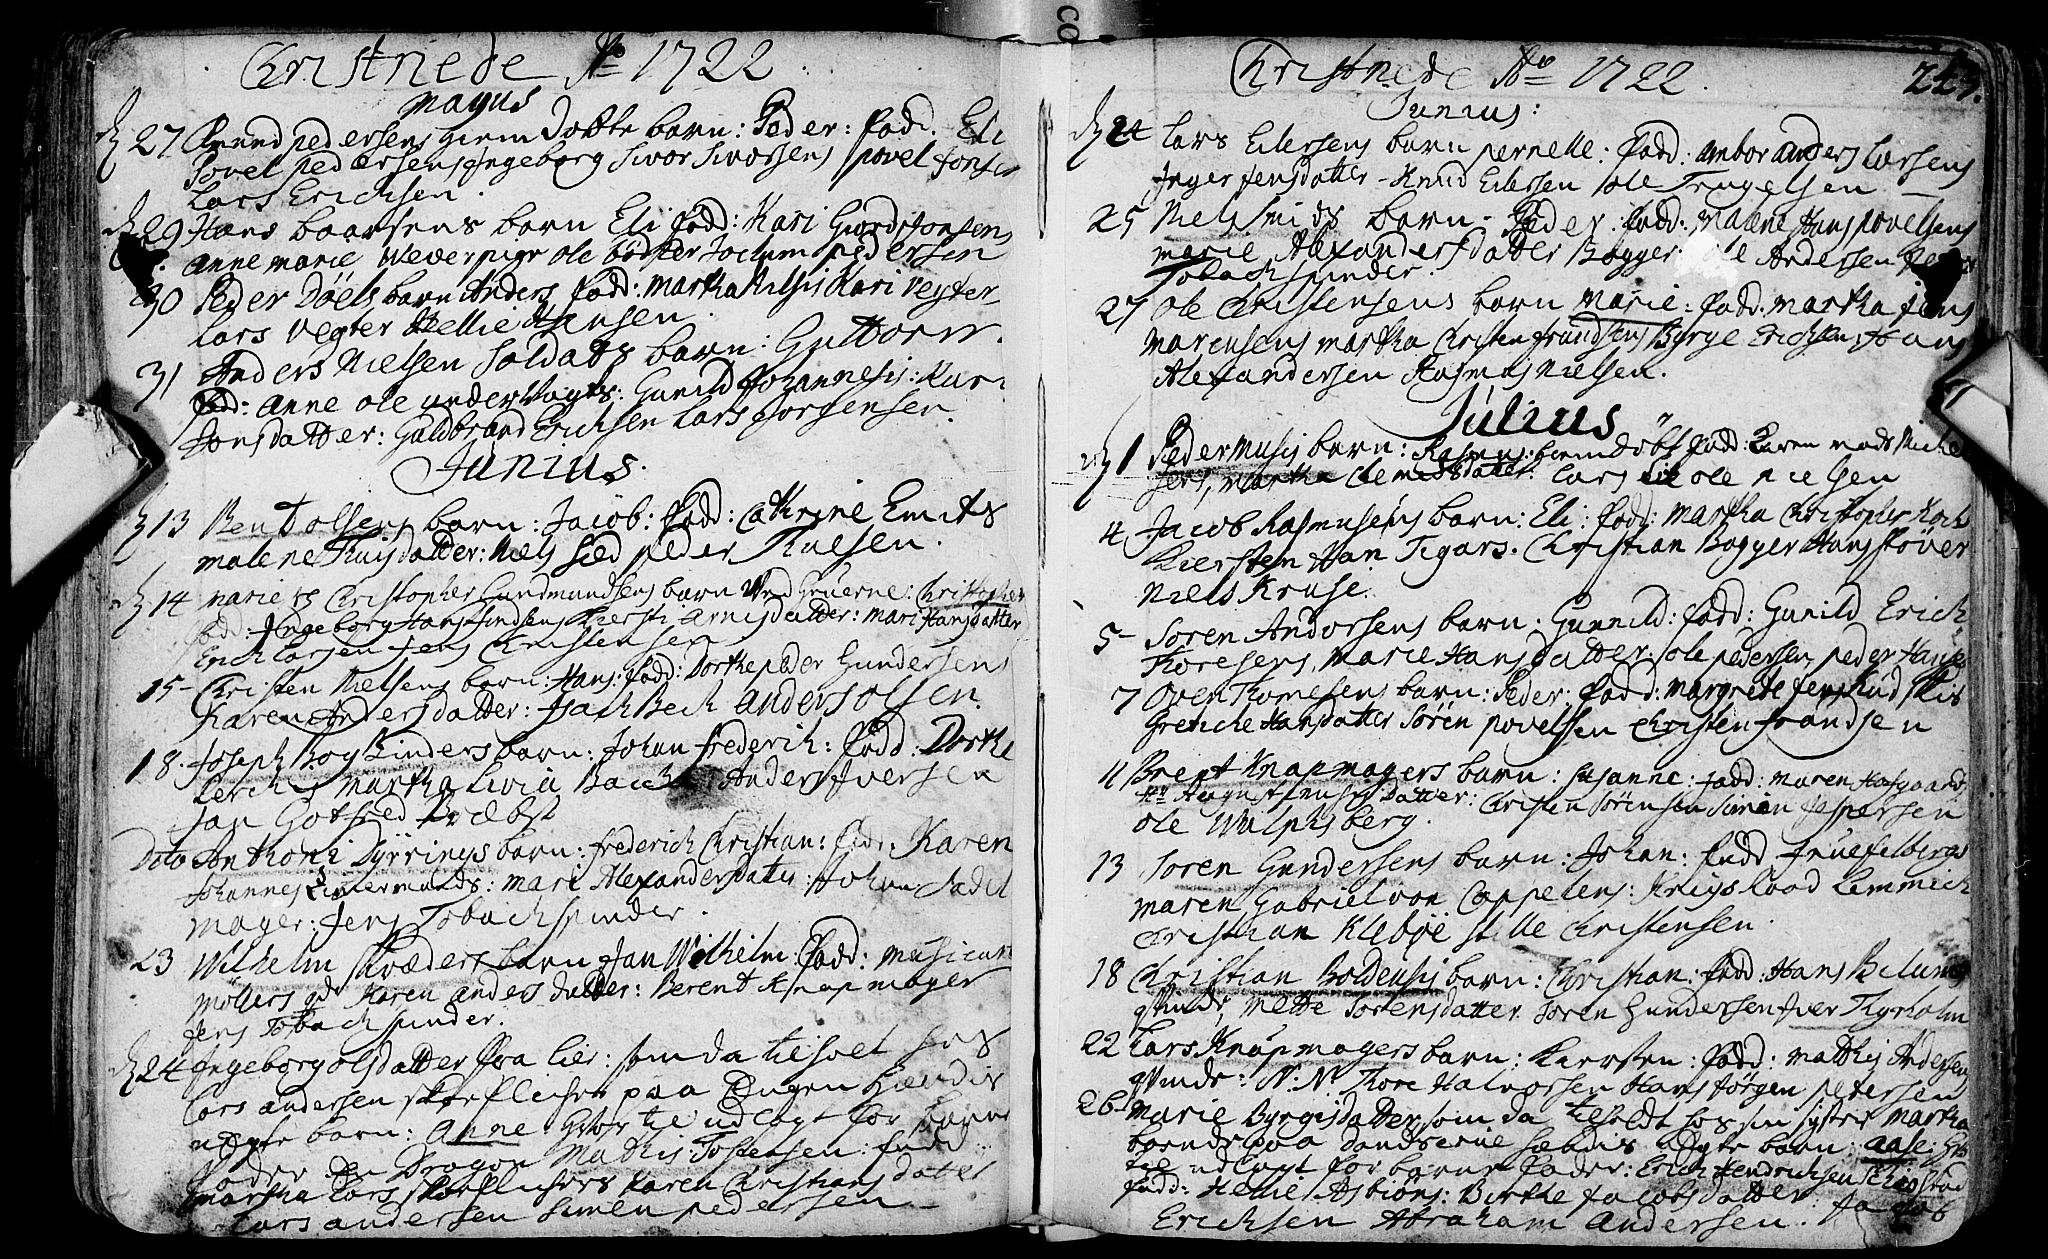 Christnede Ao 1722
Majus
27 Amund pedersens hiemdøbte barn: Peder: fadd. Eli
Povel pedersens Ingeborg Sivor Siversens povel Jonsen
Lars Erichsen.
29 Hans Baarsens barn Eli fadd: Kari Giord Jonsens
Anne marie Wever pige ole bødker Jochum pedersen
30 Peder Døels barn Anders fadd: martha Nilsis Kari Vegter
Lars Vegter Hellie Hansen.
31 Anders Nielsen Soldats barn: Guttorm.
fad: Anne ole undervogts: Gunild Johannesis: Kari
Jonsdatter: Guldbrand Erichsen Lars Jørgensen.
Junius.
13 Bent olsens barn: Jacob: fadd: Cathrine Emits
malene Thuisdatter: Niels peder Thuesen.
14 Christopher Gundmundsens barn Ved Gruerne: Christopher
fadd: Ingeborg Hans Kiersti Arnisdatter: mari Hansdatter
Erich Larsen Jens Christensen
15 Christen Nielsens barn: Hans: fadd: Dorthe peder Gundersens
Karen Andersdatter: Isach Bech Anders olsen.
18. Joseph Bogbinders barn: Johan frederich: fadd: Dorthe
Lerches Martha Livia Anders Iversen
Jan Gotfred
Dito Anthoni Dyrings barn: frederich Christian: fad: Karen
Johannes Timermands: mari Alexandersdatter: Johan Sadel
mager: Jens Tobachspinder.
23 Wilhelm skræders barn Jan Wilhelm: fadd: musicant
møllers Karen andersdatter: Berent Knapmager
Jens Tobachspinder.
24 Ingeborg olsdatter fra Lier: som da tilholt hos
Lars andersen paa Engen hendis
uægte barn: Anne
fader en Dragon Mathis Tostensen:
martha Lars Karen Christiansdatter
Lars andersen Simen pedersen
Christnede Ao 1722.
243.
Junius:
24 Lars Eilersens barn pernelle: fadd: Ambor Anders Larsens
Inger Jensdatter - Knud Eilersen ole Trugelsen
25 Niels Smids barn - Peder: fadd: Malene Hans povelsens
marie Alexandersdatter Bøgger: ole Andersen
Tobachspinder.
27 Ole Christensens barn Marie: fadd. martha Jens
Marensens martha Christen frandsens Børge Erichsen Hans
Alexandersen Rasmus Nielsen.
Julius
1 Peder Musis barn: Rasmus: hiemdøbt fadd: Karen mads Michel
sens, martha Clemetsdatter: Lars ole nielsen
4 Jacob Rasmusens barn: Eli: fadd: martha Christopher Koch
Kiersten Han Tigars. Christian Bøgger Hans Støver
Niels Kruse.
5 Soren Andersens barn: Gunnild: fadd: Gunild Erich
Thoresens, marie Hansdatter: ole pedersen, peder Hansen
7 Oven Thomesens barn: Peder: fadd: Margrete Jens
Gretiche Hansdatter Sørin povelsen Christen frandsen
11 Brent Knapmagers barn: Susanne: fadd: maren Hafgaard,
Hr Augustinus Datter: Christen Sörensen Simen Jespersen
ole Wulphsberg.
13 Soren Gundersens barn: Johan: fadd Frue felbergs
maren Gabriel von Cappelens: Krigs Raad Lemmich
Christian Klebøe Christensen.
18 Christian Boldensis barn: Christian: fadd: Hans
qvinde, Mette Sorensdatter Soren Gundersen Iver Thyrholm
22 Lars Knapmagers barn: Kiersten: fadd: Mathis Andersens
qvinde: N: N: Thore Halvorsen Hans Jørgen petersen
26 Marie Byrgisdatter, som da tilholdt hos sin syster Martha
boende paa Landserne hendis uægte barn: Aase:
udlagt for barne fader: Erich Hendrichsen
fadd: Hellie Asbiörs: Birthe Jacobsdatter: Jacob
Erichsen Abraham Andersen.